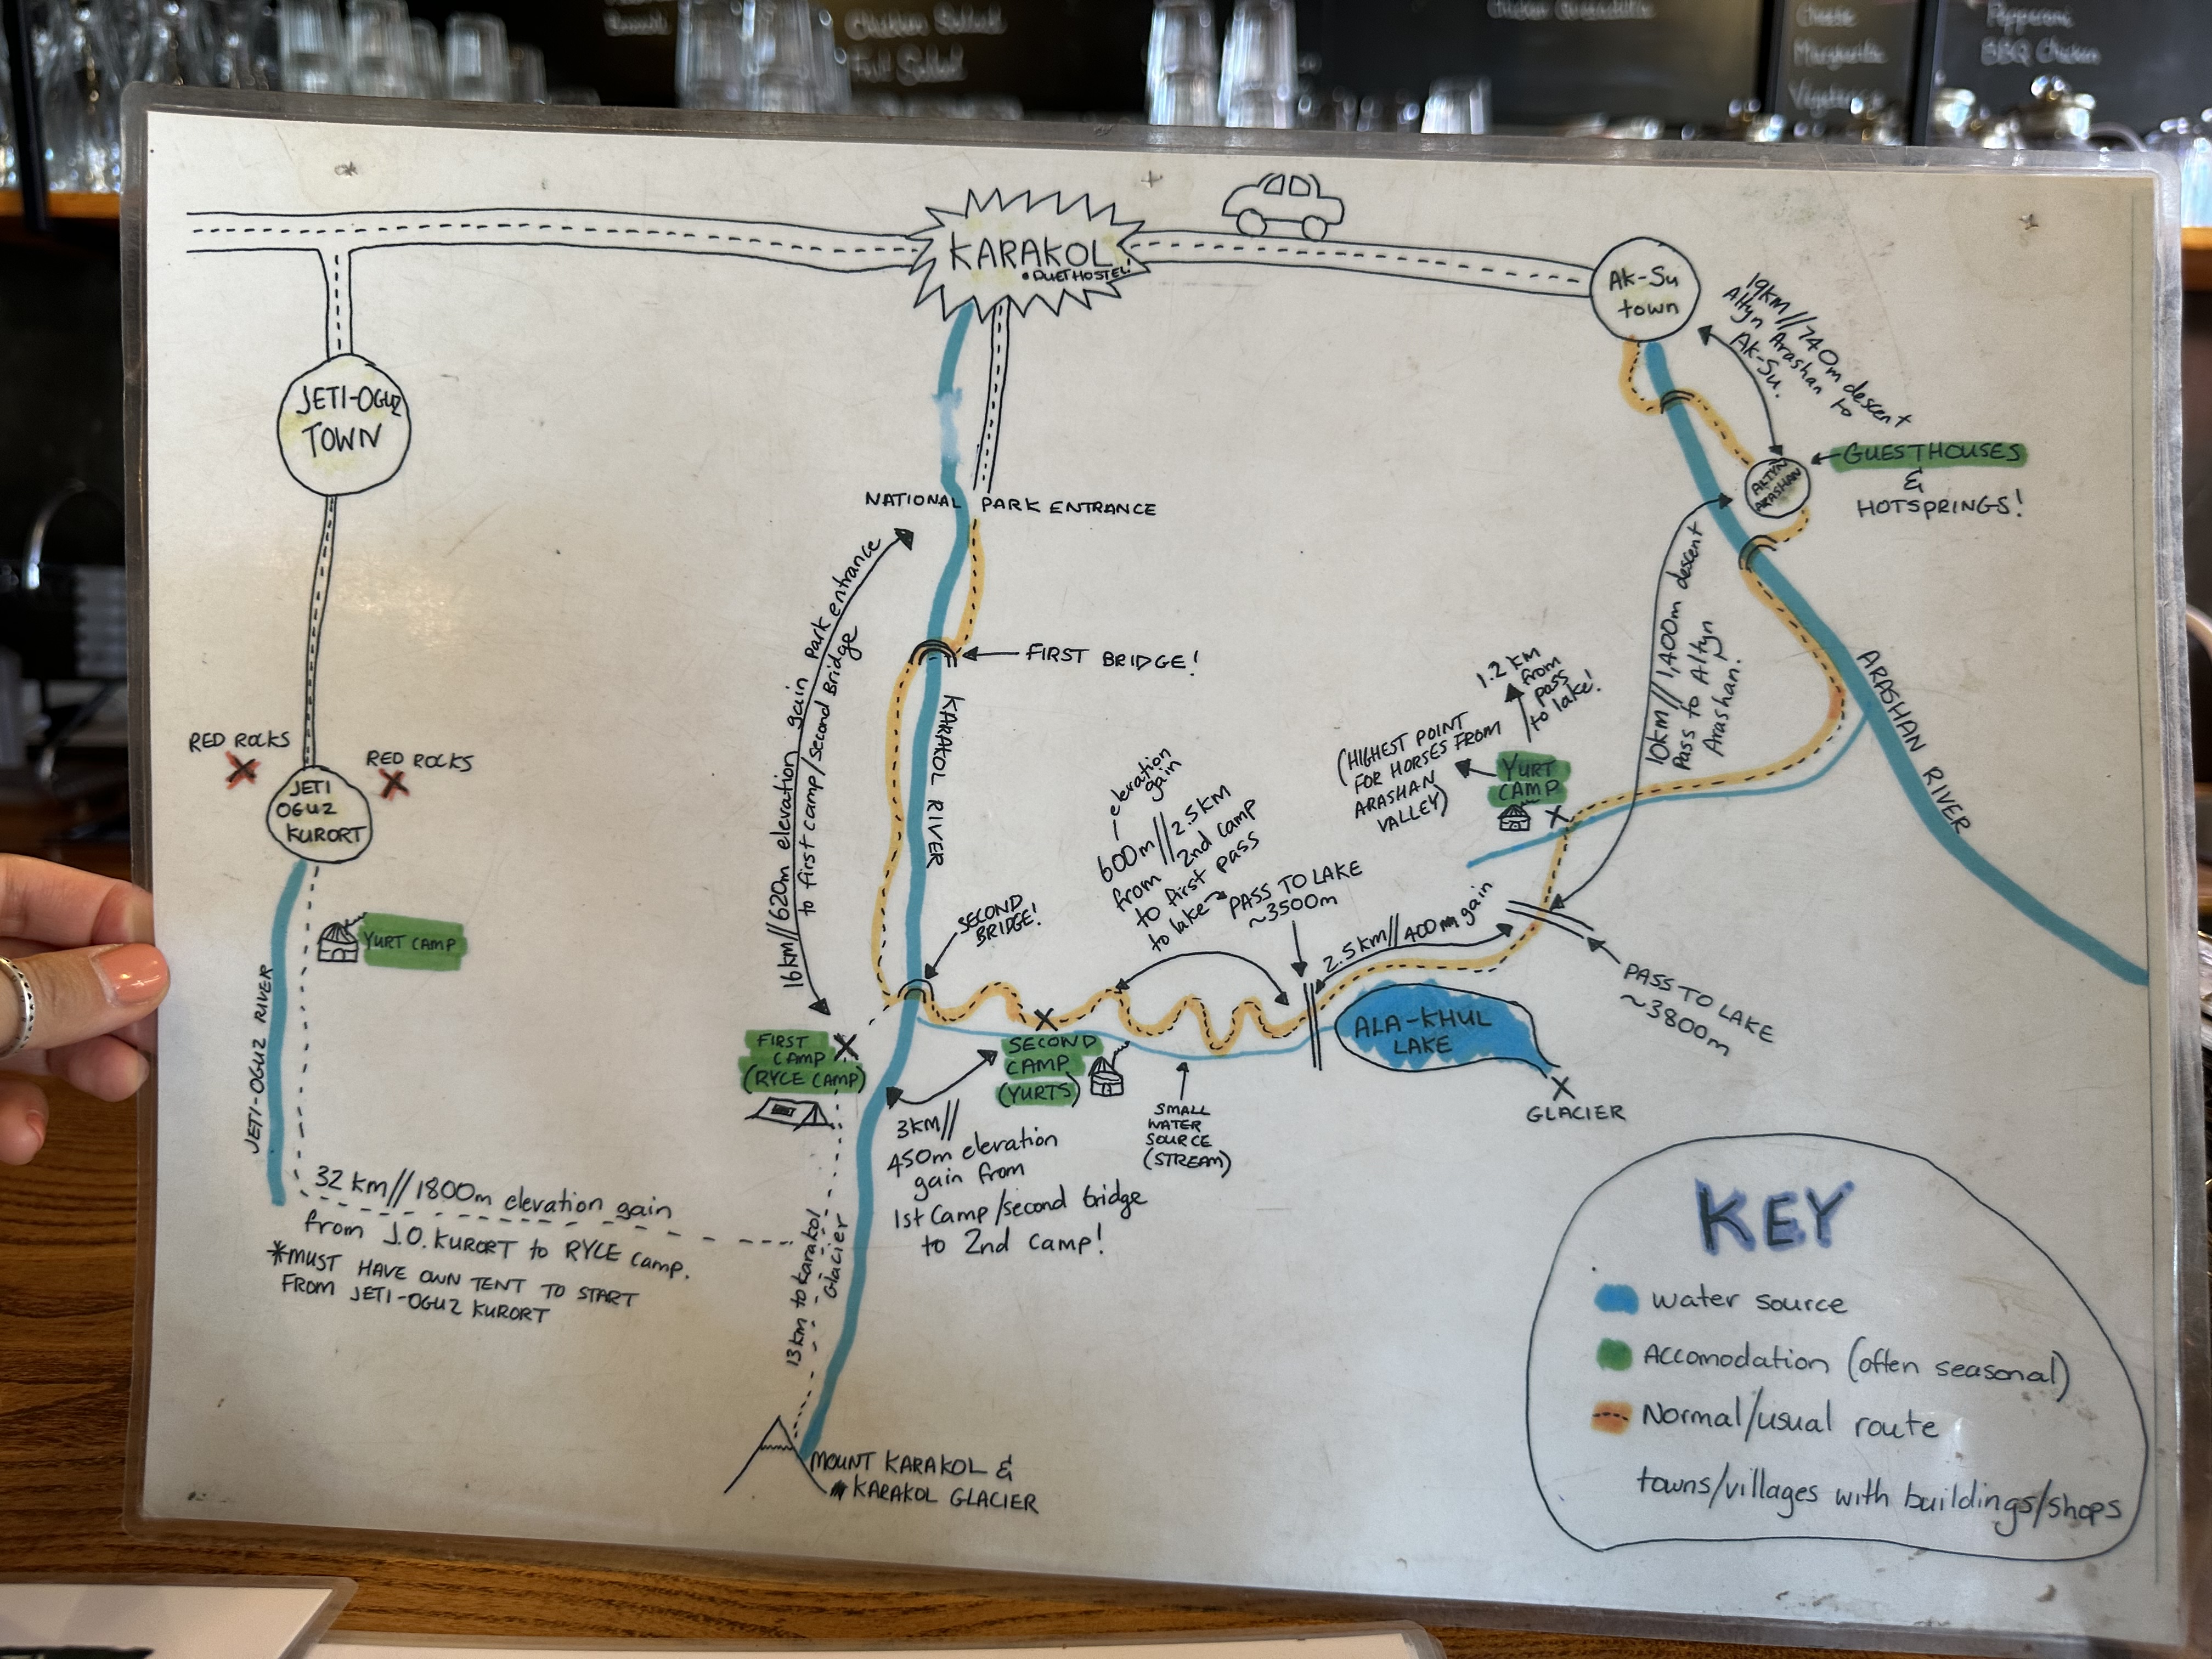 Chicken Salad
Fruit Salad
Chicken Quesadilla
Cheese
Margherita
Pepperoni
BBQ Chicken
KARAKOL
• DUET HOSTEL!
Ak-Su
town
19km//740m descent
Altyn Arashan to
Ak-Su.
JETI-OGUZ
TOWN
ALTYN
ARASHAN
GUESTHOUSES
&
HOTSPRINGS!
NATIONAL PARK ENTRANCE
FIRST BRIDGE!
KARAKOL RIVER
16km//620m elevation gain Park entrance
to first camp/second Bridge
RED ROCKS
RED ROCKS
JETI
OGUZ
KURORT
YURT CAMP
JETI-OGUZ RIVER
1.2 KM
from
pass
to lake!
(HIGHEST POINT
FOR HORSES FROM
ARASHAN
VALLEY)
YURT
CAMP
10km//1,400m descent
Pass to Altyn
Arashan!
ARASHAN RIVER
elevation
gain
600m//2.5KM
from 2nd camp
to first pass
to lake
PASS TO LAKE
~3500m
2.5km//400m gain
PASS TO LAKE
~3800m
SECOND
BRIDGE!
FIRST
CAMP
(RYCE CAMP)
SECOND
CAMP
(YURTS)
ALA-KHUL
LAKE
GLACIER
SMALL
WATER
SOURCE
(STREAM)
3KM//
450m elevation
gain from
1st Camp/second bridge
to 2nd camp!
32 km//1800m elevation gain
from J.O. KURORT to RYCE camp.
*MUST HAVE OWN TENT TO START
FROM JETI-OGUZ KURORT
13km to Karakol
Glacier
MOUNT KARAKOL &
KARAKOL GLACIER
KEY
water source
Accomodation (often seasonal)
Normal/usual route
towns/villages with buildings/shops